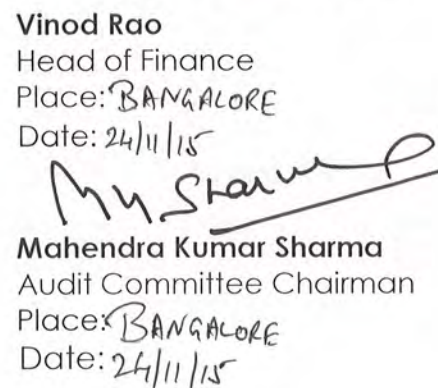 Vinod Rao
Head of Finance
Place: BANGALORE
Date: 24/11/15
MK Sharma
Mahendra Kumar Sharma
Audit Committee Chairman
Place: BANGALORE
Date: 24/11/15